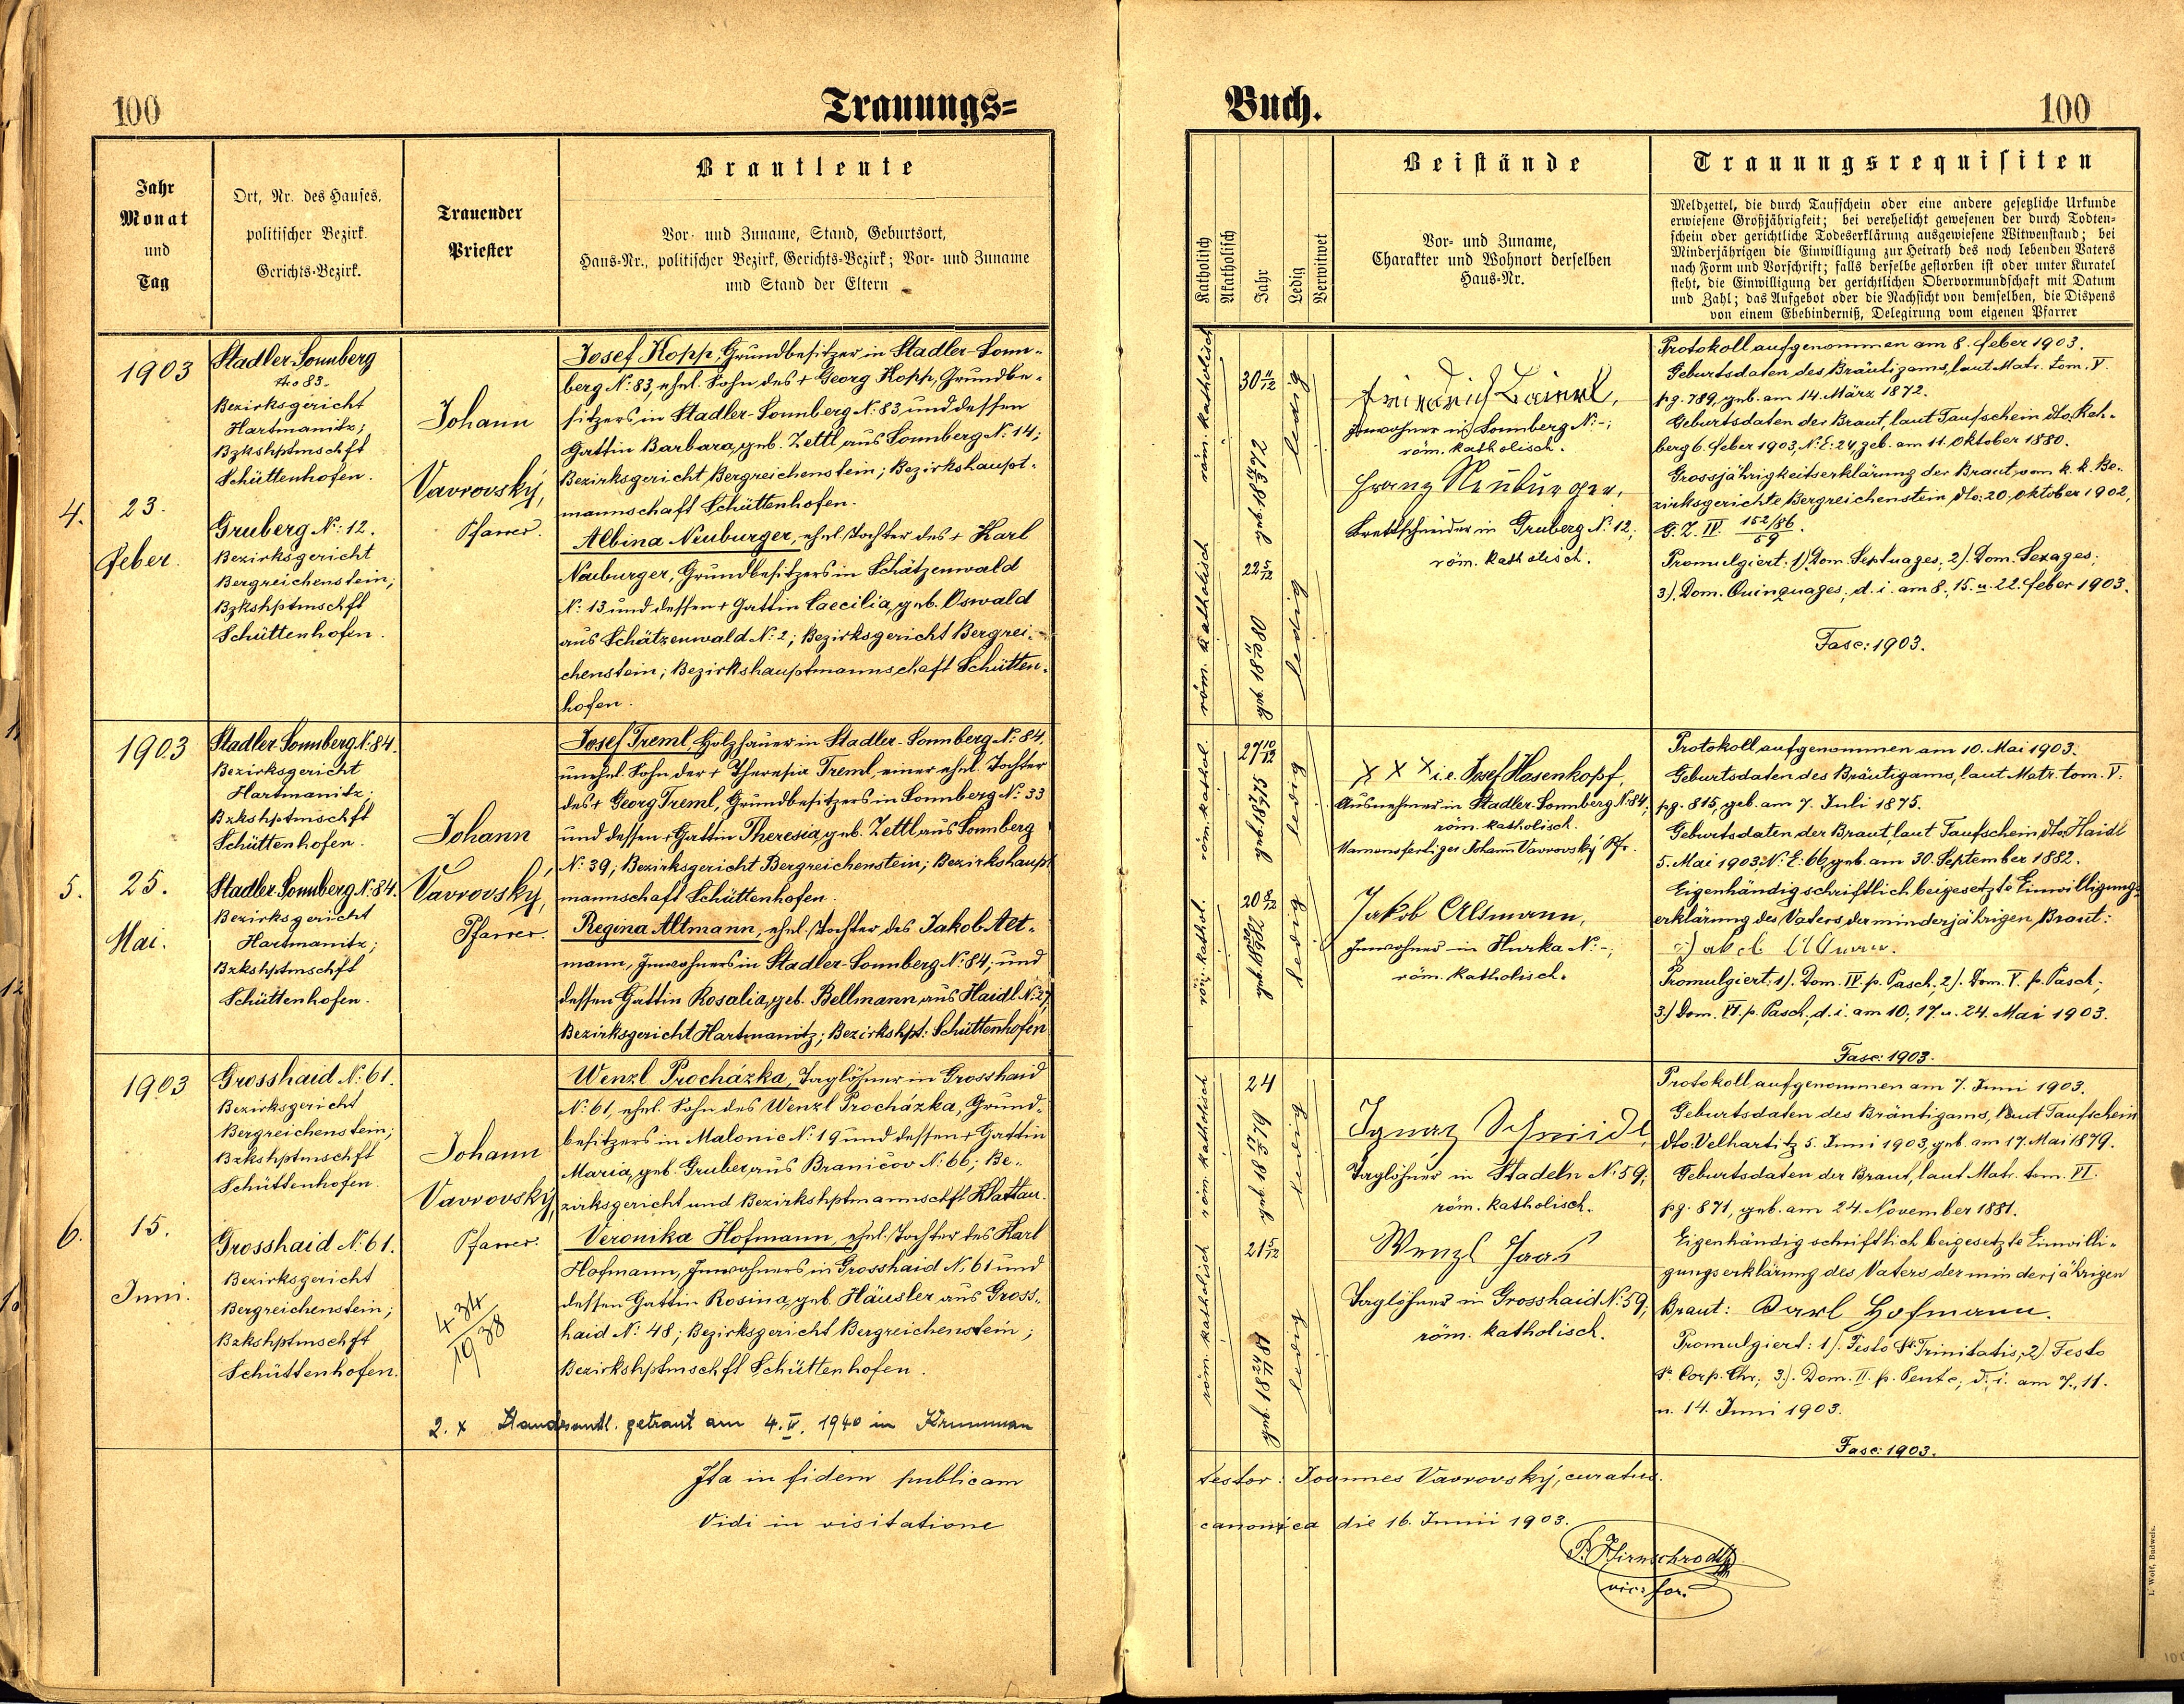 100
Trauungs=
Jahr
Monat
und
Tag
Ort, Nr. des Hauses,
politischer Bezirk.
Gerichts-Bezirk.
Trauender
Priester
Brautleute
Vor- und Zuname, Stand, Geburtsort,
Haus-Nr., politischer Bezirk, Gerichts-Bezirk; Vor- und Zuname
und Stand der Eltern
4.
1903
23.
Feber.
Stadler-Sonnberg
Nro 83.
Bezirksgericht
Hartmanitz;
Bzkshptmschft
Schüttenhofen.
Gruberg N: 12.
Bezirksgericht
Bergreichenstein;
Bzkshptmschft
Schüttenhofen.
Johann
Vavrovský,
Pfarrer.
Josef Kopp, Grundbesitzer in Stadler-Sonn-
berg N: 83, ehel. Sohn des + Georg Kopp, Grundbe-
sitzers in Stadler-Sonnberg N: 83 und dessen
Gattin Barbara, geb. Zettl aus Sonnberg N: 14;
Bezirksgericht Bergreichenstein; Bezirkshaupt-
mannschaft Schüttenhofen.
Albina Neuburger, ehel. Tochter des + Karl
Neuburger, Grundbesitzers in Schätzenwald
N: 13 und dessen + Gattin Caecilia, geb. Oswald
aus Schätzenwald N: 2; Bezirksgericht Bergrei-
chenstein; Bezirkshauptmannschaft Schütten-
hofen.
5.
1903
25.
Mai.
Stadler Sonnberg N: 84.
Bezirksgericht
Hartmanitz;
Bzkshptmschft
Schüttenhofen.
Stadler Sonnberg N: 84.
Bezirksgericht
Hartmanitz;
Bzkshptmschft
Schüttenhofen.
Johann
Vavrovský,
Pfarrer.
Josef Treml, Holzhauer in Stadler-Sonnberg N: 84,
unehel. Sohn der + Theresia Treml, einer ehel. Tochter
des + Georg Treml, Grundbesitzers in Sonnberg N: 33
und dessen + Gattin Theresia, geb. Zettl aus Sonnberg
N: 39; Bezirksgericht Bergreichenstein; Bezirkshaupt
mannschaft Schüttenhofen.
Regina Altmann, ehel. Tochter des Jakob Alt-
mann, Inwohners in Stadler-Sonnberg N: 84; und
dessen Gattin Rosalia, geb. Bellmann aus Haidl N: 27;
Bezirksgericht Hartmanitz; Bezirkshpt: Schüttenhofen
6.
1903
15.
Juni.
Grosshaid N: 61.
Bezirksgericht
Bergreichenstein;
Bzkshptmschft
Schüttenhofen.
Grosshaid N: 61.
Bezirksgericht
Bergreichenstein;
Bzkshptmschft
Schüttenhofen.
Johann
Vavrovský,
Pfarrer.
434
1938
Wenzl Procházka, Taglöhner in Grosshaid
N: 61, ehel. Sohn des Wenzl Procházka, Grund-
besitzers in Malonic N: 19 und dessen + Gattin
Maria, geb. Gruber aus Braničov N: 66; Be-
zirksgericht und Bezirkshptmannschft Klattau.
Veronika Hofmann, ehel. Tochter des Karl
Hofmann, Inwohners in Grosshaid N: 61 und
dessen Gattin Rosina, geb. Häusler aus Gross-
haid N: 48; Bezirksgericht Bergreichenstein;
Bezirkshptmschft Schüttenhofen.
2. x Standesamtl. getraut am 4. IV. 1940 in Krummau
Ita in fidem publicam
Vidi in visitatione
Buch.
100
Katholisch
Akatholisch
Jahr
Ledig
Verwitwet
Beistände
Vor- und Zuname,
Charakter und Wohnort derselben
Haus-Nr.
Trauungsrequisiten
Meldzettel, die durch Taufschein oder eine andere gesetzliche Urkunde
erwiesene Großjährigkeit; bei verehelicht gewesenen der durch Todten-
schein oder gerichtliche Todeserklärung ausgewiesene Witwenstand; bei
Minderjährigen die Einwilligung zur Heirath des noch lebenden Vaters
nach Form und Vorschrift; falls derselbe gestorben ist oder unter Kuratel
steht, die Einwilligung der gerichtlichen Obervormundschaft mit Datum
und Zahl; das Aufgebot oder die Nachsicht von demselben, die Dispens
von einem Ehehinderniß, Delegirung vom eigenen Pfarrer
röm. katholisch
30 11/12
geb. 18 14/3 72
ledig
röm. katholisch
22 5/12
geb. 18 11/10 80
ledig
Friedrich
Inwohner in Sonnberg N: -;
röm. katholisch.
Franz Neuburger,
Brettschneider in Gruberg N: 12;
röm. katholisch.
Protokoll aufgenommen am 8. Feber 1903.
Geburtsdaten des Bräutigams, laut Matr. tom. V.
pg. 789, geb. am 14. März 1872.
Geburtsdaten der Braut, laut Taufschein dto. Reh-
berg 6. Feber 1903, N: E: 24, geb. am 11. Oktober 1880.
Grossjährigkeitserklärung der Braut vom k. k. Be-
zirksgerichte Bergreichenstein dto: 20. Oktober 1902,
G. Z. IV. 152/86
59.
Promulgiert: 1) Dom. Septuages; 2). Dom. Sexages;
3). Dom. Quinquages; d. i. am 8., 15. u. 22. Feber 1903.
Fasc: 1903.
röm. kathol.
27 10/12
geb. 18 7/7 75
ledig
röm. kathol.
20 8/12
geb. 18 30/9 82
ledig
X X X i. e. Josef Hasenkopf,
Ausnehmer in Stadler-Sonnberg N: 84;
röm. katholisch.
Namensfertiger Johann Vavrovský Pfr.
Jakob Altmann,
Inwohner in Hurka N: -;
röm. katholisch.
Protokoll aufgenommen am 10. Mai 1903.
Geburtsdaten des Bräutigams, laut Matr. tom. V.
pg. 815, geb. am 7. Juli 1875.
Geburtsdaten der Braut, laut Taufschein dto. Haidl
5. Mai 1903, N: E: 66, geb. am 30. September 1882.
Eigenhändig schriftlich beigesetzte Einwilligungs-
erklärung des Vaters der minderjährigen Braut:
Jakob
Promulgiert: 1). Dom. IV. p. Pasch.; 2). Dom. V. p. Pasch.;
3.) Dom. VI. p. Pasch., d. i. am 10., 17. u. 24. Mai 1903.
Fasc: 1903.
röm. katholisch
24
geb. 18 17/5 79
ledig
röm. katholisch
21 5/12
geb. 18 24/11 81
ledig
Ignaz Schmidt,
Taglöhner in Stadeln N: 59;
röm. katholisch.
Wenzl
Taglöhner in Grosshaid N: 59;
röm. katholisch.
Protokoll aufgenommen am 7. Juni 1903.
Geburtsdaten des Bräutigams, laut Taufschein
dto. Velhartitz 5. Juni 1903, geb. am 17. Mai 1879.
Geburtsdaten der Braut, laut Matr. tom. VI.
pg. 871, geb. am 24. November 1881.
Eigenhändig schriftlich beigesetzte Einwilli-
gungserklärung des Vaters der minderjährigen
Braut: Karl Hofmann.
Promulgiert: 1). Festo Ss. Trinitatis; 2) Festo
Ss. Corp. Chr.; 3). Dom. II. p. Pentc; d. i. am 7., 11.
u. 14. Juni 1903.
Fasc: 1903.
testor: Joannes Vavrovský, curatus.
canonica die 16. Junii 1903.
vic. for.
L. Wolf, Budweis.